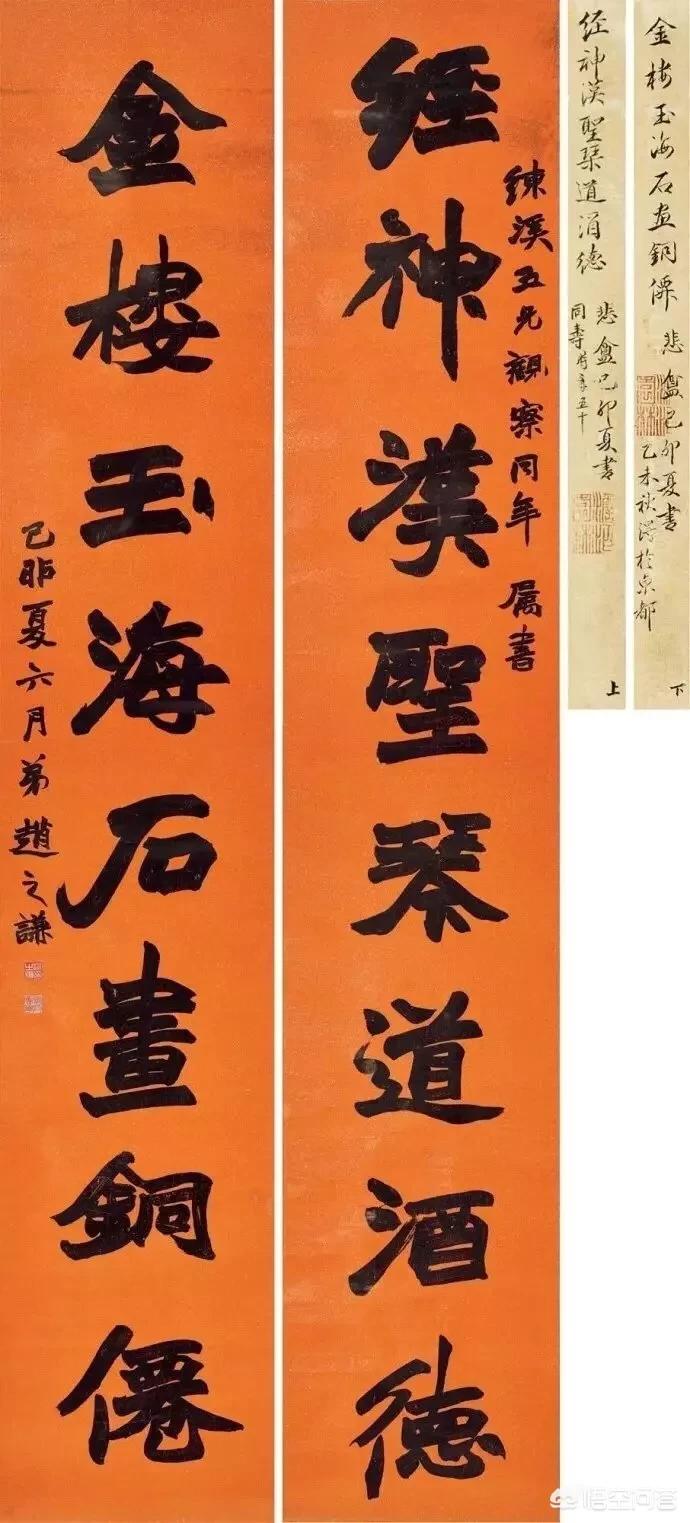 經神漢聖琴道酒德
練溪五兄觀察同年 屬書
金樓玉海石畫銅僊
己卯夏六月弟趙之謙
金樓玉海石畫銅僊 悲盦己卯夏書
乙未秋得於京都
下
經神漢聖琴道酒德 悲盦己卯夏書
同壽 年五十
上
悟空问答